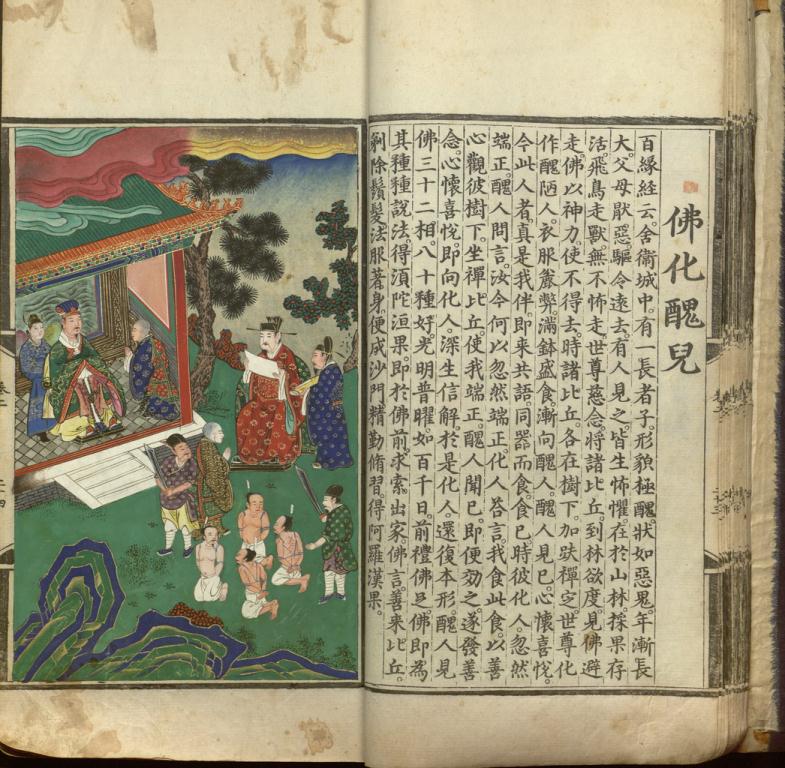 佛化醜兒
百緣經云。舍衞城中。有一長者子。形貌極醜。狀如惡鬼。年漸長
大。父母厭惡。驅令遠去。有人見之。皆生怖懼。在於山林。採果存
活。飛鳥走獸。無不怖走。世尊慈念。將諸比丘。到林欲度。見佛避
走。佛以神力。使不得去。時諸比丘。各在樹下。加趺禪定。世尊化
作醜陋人。衣服麤弊。滿鉢盛食。漸向醜人。醜人見已。心懷喜悅。
今此人者。眞是我伴。即來共語。同器而食。食已。時彼化人。忽然
端正。醜人問言。汝今何以忽然端正。化人荅言。我食此食。以善
心觀彼樹下。坐禪比丘。使我端正。醜人聞已。即便効之。遂發善
念。心懷喜悅。即向化人。深生信解。於是化人。還復本形。醜人見
佛。三十二相。八十種好。光明普曜。如百千日。前禮佛足。佛即爲
其種種說法。得湏陀洹果。即於佛前。求索出家。佛言。善來比丘。
剃除鬚髮。法服著身。便成沙門。精勤脩習。得阿羅漢果。
卷二
二四